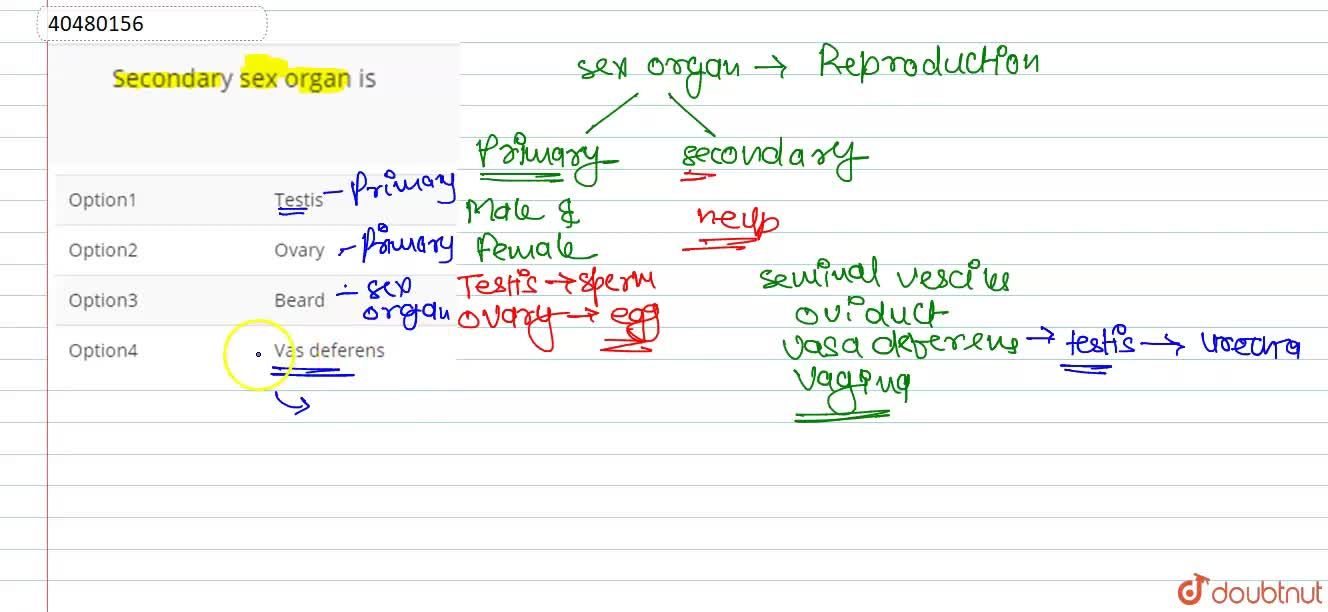 40480156
Secondary sex organ is
Option1 Testis - Primary
Option2 Ovary - Primary
Option3 Beard - sex organ
Option4 Vas deferens
sex organ → Reproduction
Primary secondary
Male &
Female
help
Testis → sperm
Ovary → egg
seminal vesciles
oviduct
vasa deferens → testis → urethra
vagina
doubtnut